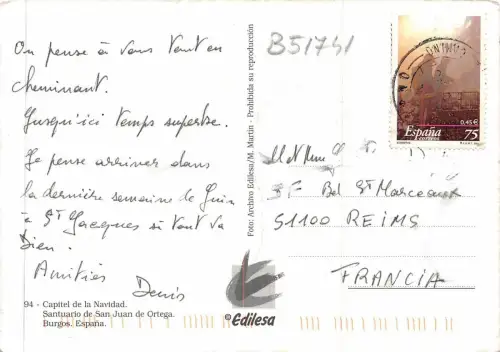 On pense à vous tout en
cheminant.
Jusqu'ici temps superbe.
Je pense arriver dans
la dernière semaine de Juin
à St Jacques si tout va
Bien.
Amitiés
Denis
94 - Capitel de la Navidad.
Santuario de San Juan de Ortega.
Burgos. España.
Foto: Archivo Edilesa/M. Martín - Prohibida su reproducción
© Edilesa
B51741
0,45 €
España
correos
75
Bd St Marceaux
51100 REIMS
FRANCIA